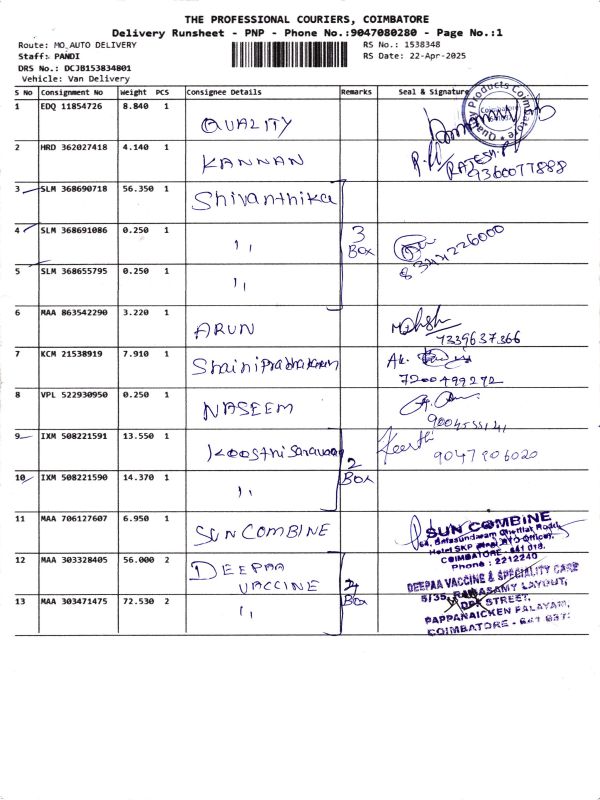 THE PROFESSIONAL COURIERS, COIMBATORE
Delivery Runsheet - PNP - Phone No.:9047080280 - Page No.:1
Route: MO_AUTO DELIVERY RS No.: 1538348
Staff: PANDI RS Date: 22-Apr-2025
DRS No.: DCJB153834801
Vehicle: Van Delivery
S No Consignment No Weight PCS Consignee Details Remarks Seal & Signature
1 EDQ 11854726 8.840 1 QUALITY Quality Products Coimbatore
2 HRD 362027418 4.140 1 KANNAN RAJESH.P 9360077888
3 SLM 368690718 56.350 1 Shivanthika
4 SLM 368691086 0.250 1 " 3 Box
5 SLM 368655795 0.250 1 "
6 MAA 863542290 3.220 1 ARUN 7339637366
7 KCM 21538919 7.910 1 Shainiprabhakaran 7200499272
8 VPL 522930950 0.250 1 NASEEM
9 IXM 508221591 13.550 1 Koosthisaravanan 2 Keerthi
10 IXM 508221590 14.370 1 " Box
11 MAA 706127607 6.950 1 SUN COMBINE SUN COMBINE
64, Balasundaram Chettiar Road,
Hotel SKP (Near) RTO Office),
COIMBATORE - 641 018.
Phone : 2212240
12 MAA 303328405 56.000 2 DEEPAA VACCINE DEEPAA VACCINE & SPECIALITY CARE
5/35, RAMASAMY LAYOUT,
13 MAA 303471475 72.530 2 " Box STREET,
PAPPANAICKEN PALAYAM,
COIMBATORE - 641 037.